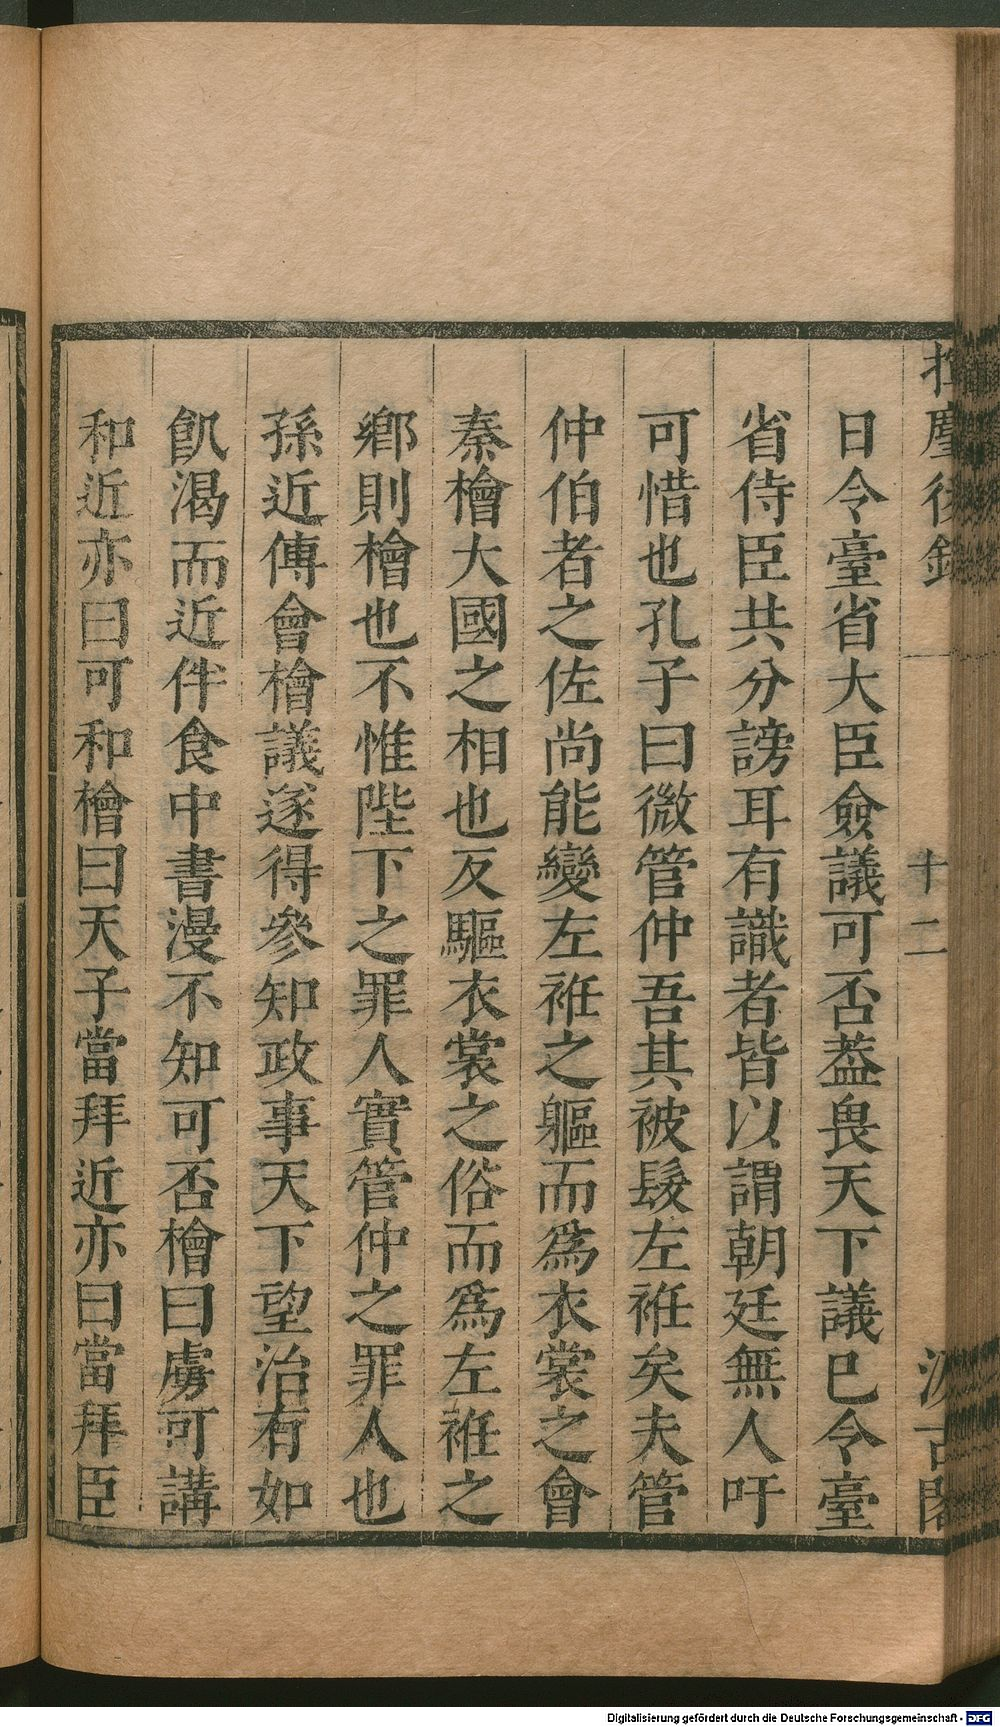 揮塵後錄
十二
汲古閣
日令臺省大臣僉議可否葢畏天下議巳令臺
省侍臣共分謗耳有識者皆以謂朝廷無人吁
可惜也孔子曰微管仲吾其被髮左袵矣夫管
仲伯者之佐尚能變左袵之軀而爲衣裳之會
秦檜大國之相也反驅衣裳之俗而爲左袵之
鄉則檜也不惟陛下之罪人實管仲之罪人也
孫近傳會檜議遂得參知政事天下望治有如
飢渴而近伴食中書漫不知可否檜曰虜可講
和近亦曰可和檜曰天子當拜近亦曰當拜臣
Digitalisierung gefördert durch die Deutsche Forschungsgemeinschaft - DFG